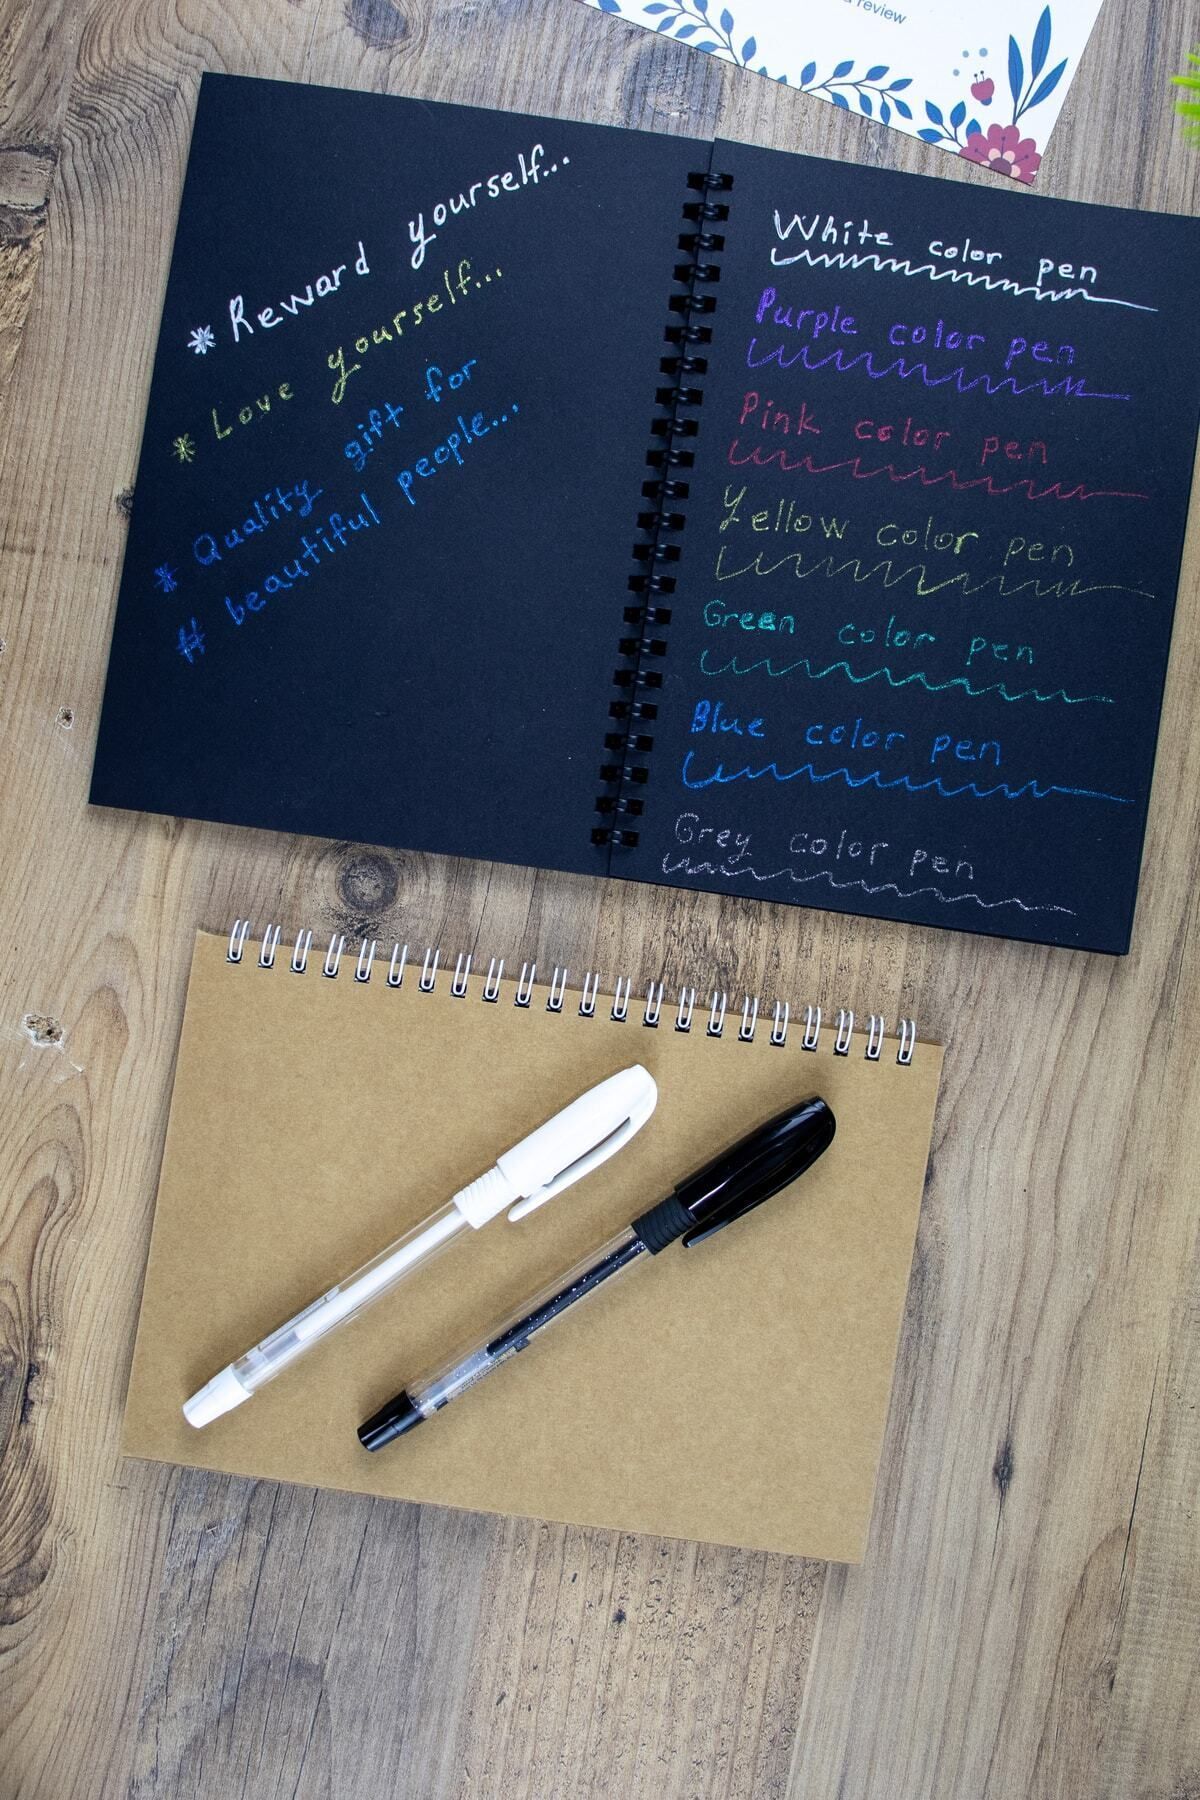 a review
* Reward yourself...
* Love yourself...
* Quality gift for
# beautiful people...
White color pen
Purple color pen
Pink color pen
Yellow color pen
Green color pen
Blue color pen
Grey color pen